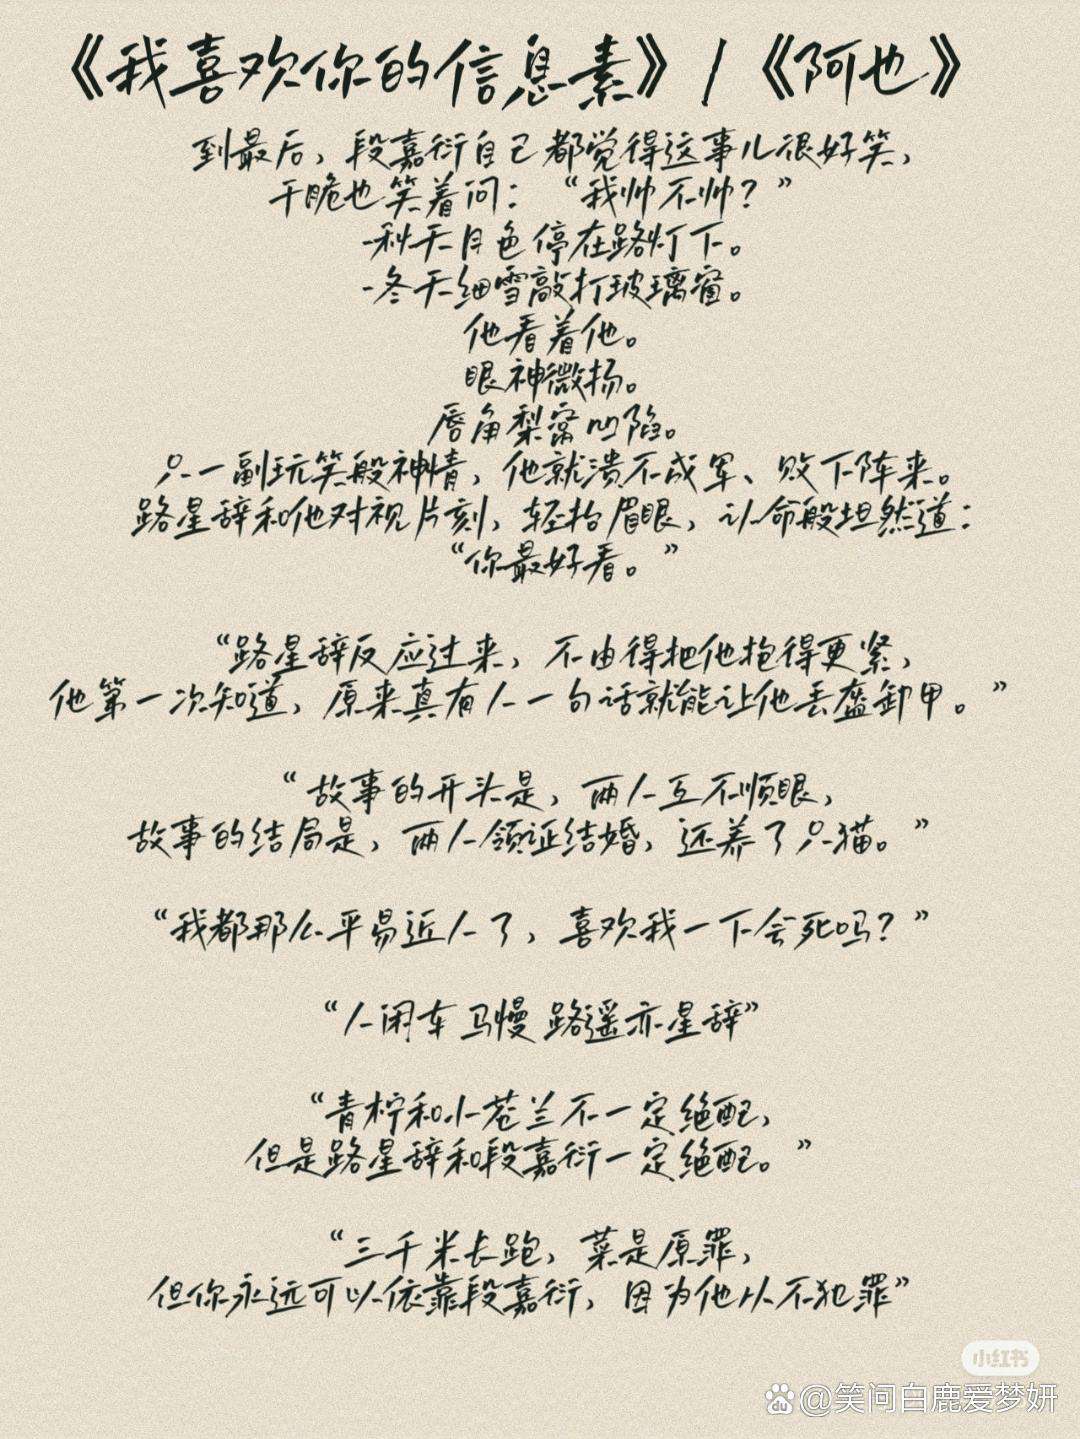 《我喜欢你的信息素》/《阿也》
到最后，段嘉衍自己都觉得这事儿很好笑，
干脆也笑着问：“我帅不帅？”
-秋天月色停在路灯下。
-冬天细雪敲打玻璃窗。
他看着他。
眼神微扬。
唇角梨窝凹陷。
只一副玩笑般神情，他就溃不成军、败下阵来。
路星辞和他对视片刻，轻抬眉眼，认命般坦然道：
“你最好看。”
“路星辞反应过来，不由得把他抱得更紧，
他第一次知道，原来真有人一句话就能让他丢盔卸甲。”
“故事的开头是，两人互不顺眼，
故事的结局是，两人领证结婚，还养了只猫。”
“我都那么平易近人了，喜欢我一下会死吗？”
“人闲车马慢 路遥亦星辞”
“青柠和小苍兰不一定绝配，
但是路星辞和段嘉衍一定绝配。”
“三千米长跑，菜是原罪，
但你永远可以依靠段嘉衍，因为他从不犯罪”
小红书
Bai du @笑问白鹿爱梦妍